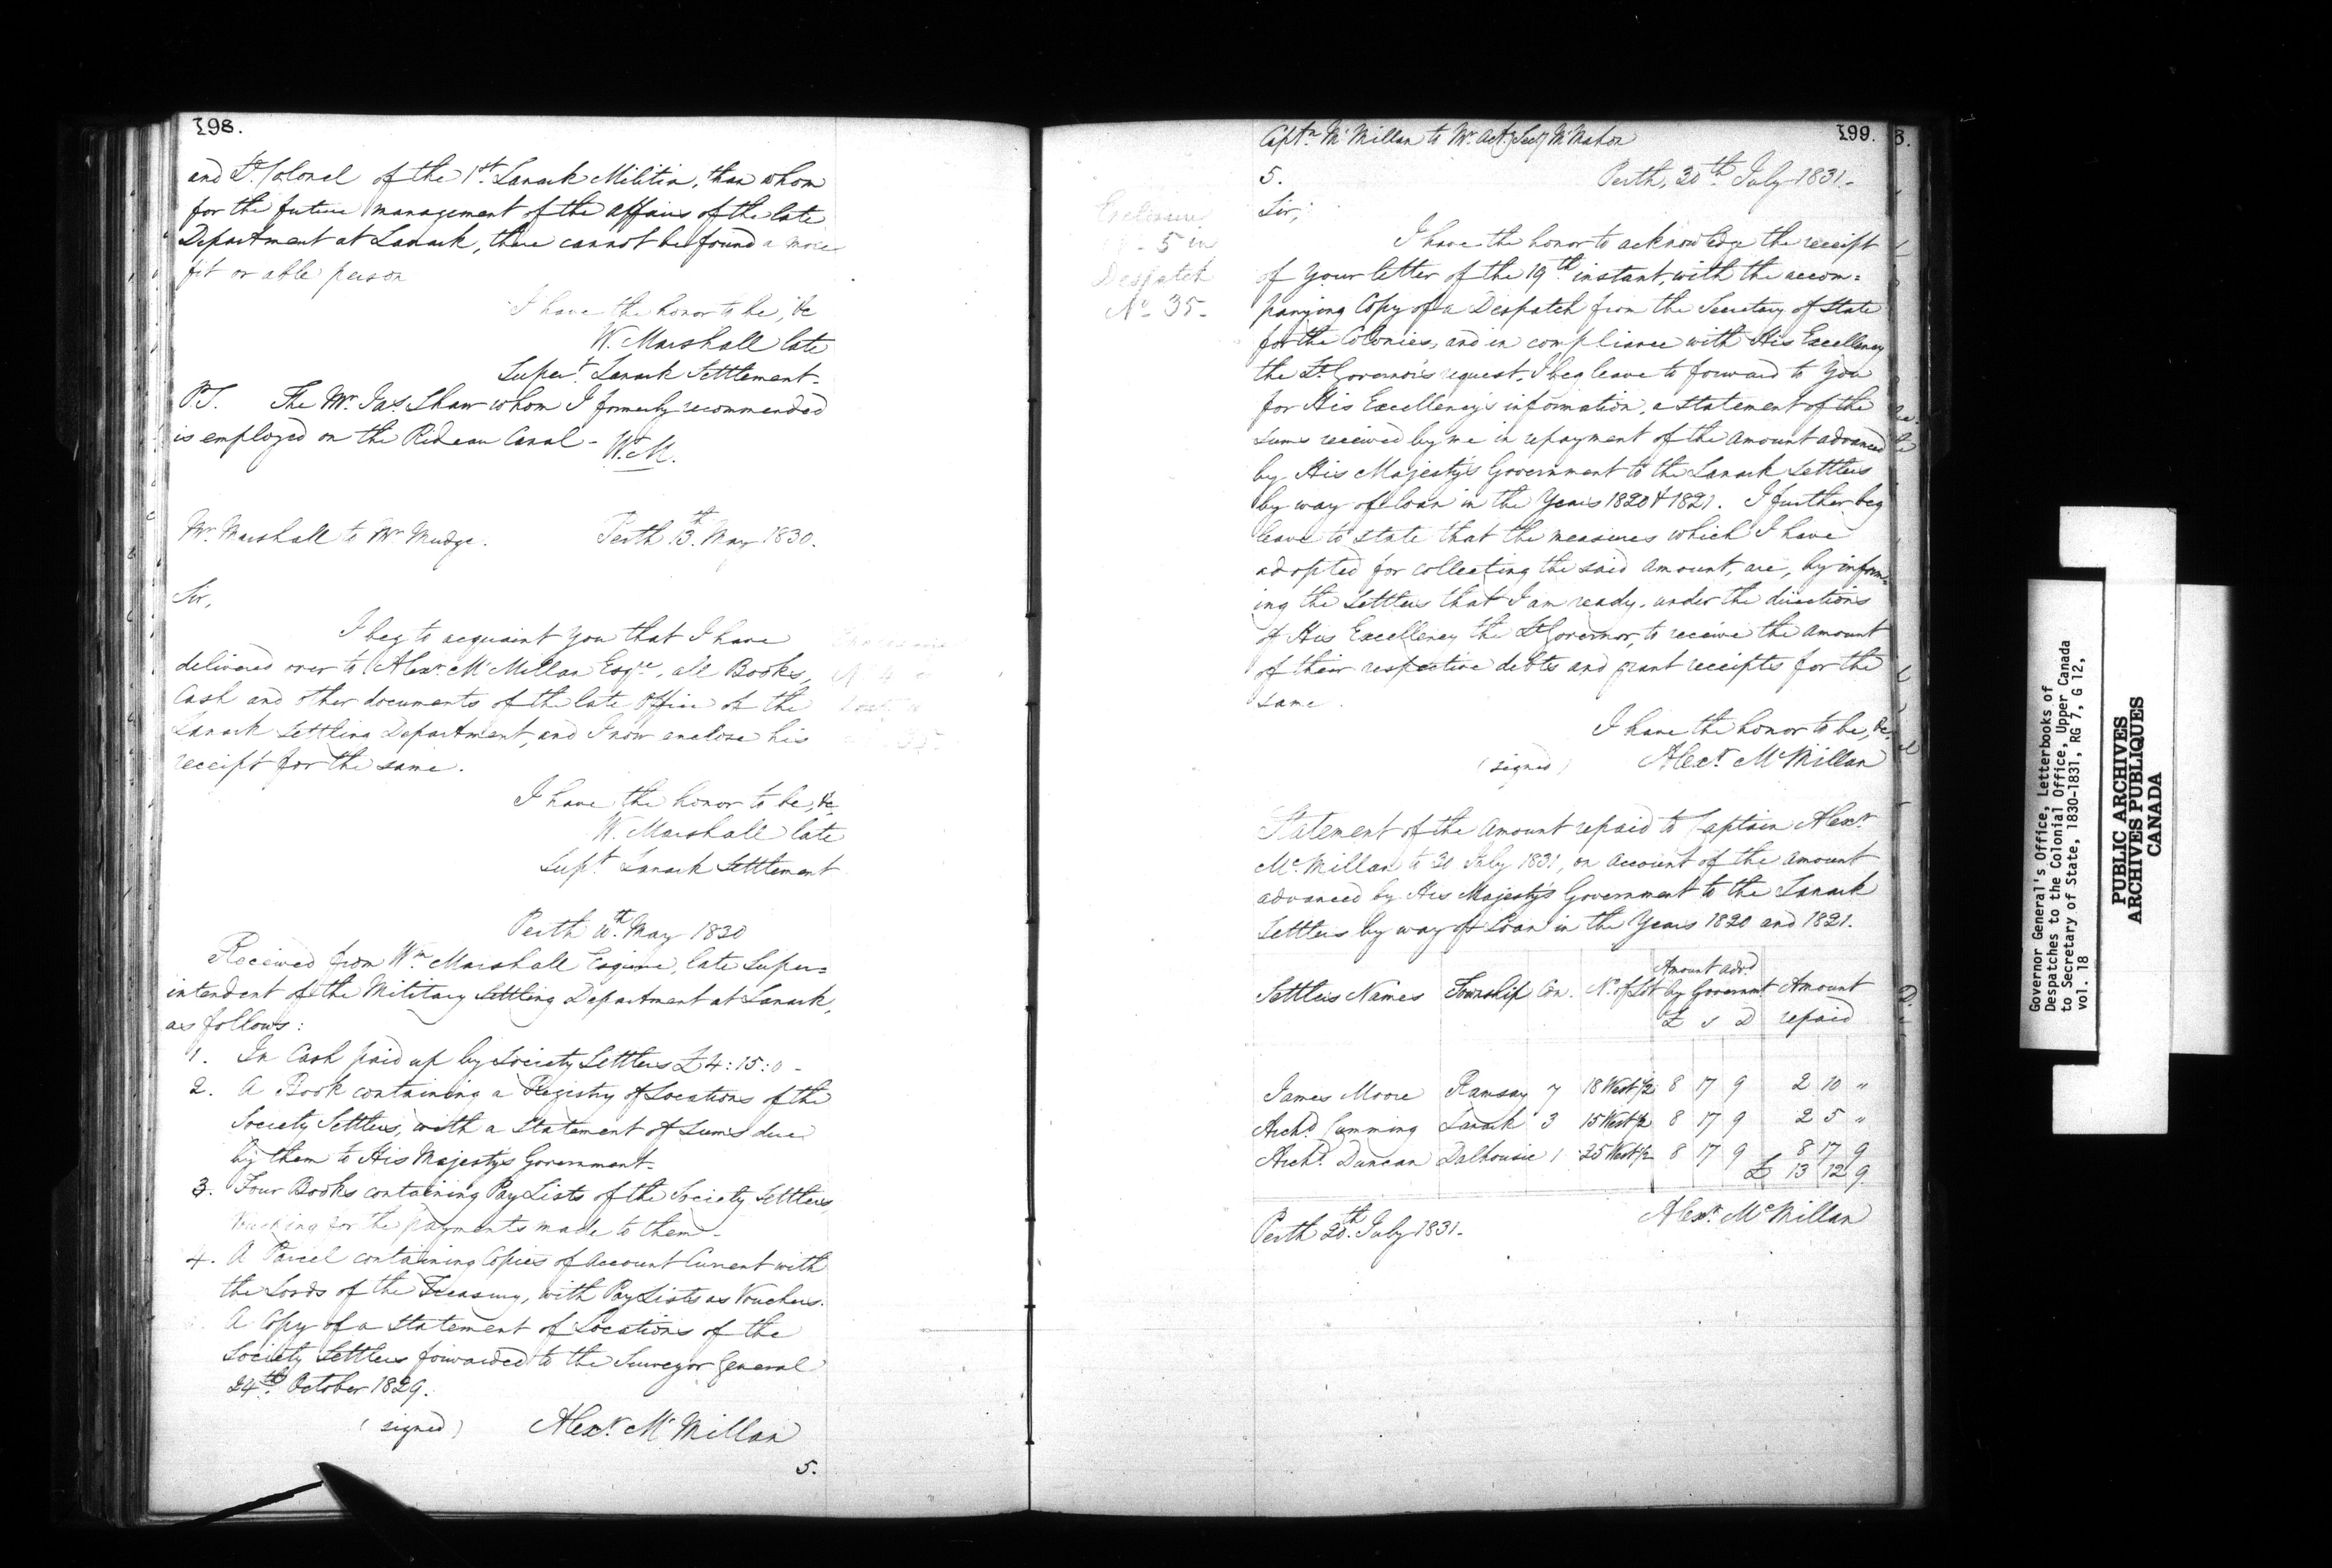 198.
and Lt. Colonel of the 1st. Lanark Militia, than whom
for the future management of the affairs of the late
Department at Lanark, there cannot be found a more
fit or able person
I have the honor to be, &c
W. Marshall late
Supert. Lanark Settlement.
P.S. The Mr. Jas. Shaw whom I formerly recommended
is employed on the Rideau Canal -
W.M.
Mr. Marshall to Mr. Mudge. Perth 13th. May 1830.
Sir,
I beg to acquaint You that I have
delivered over to Alexr. McMillan Esqre. all Books,
Cash and other documents of the late Office of the
Lanark Settling Department, and I now enclose his
receipt for the same.
I have the honor to be, &c
W. Marshall late
Supt. Lanark Settlement
No. 4
35
Perth 10th. May 1830
Received from Wm. Marshall Esquire, late Super=
intendent of the Military Settling Department at Lanark,
as follows:
1. In Cash paid up by Society Settlers £4:15:0 -
2. A Book containing a Registry of Locations of the
Society Settlers, with a Statement of Sums due
by them to His Majesty's Government.
3. Four Books containing Pay Lists of the Society Settlers,
Vouching for the payments made to them.
4. A Parcel containing Copies of Account Current with
the Lords of the Treasury, with Pay Lists as Vouchers.
A Copy of a Statement of Locations of the
Society Settlers forwarded to the Surveyor General
24th. October 1829.
(signed) Alexr. McMillan
5.
Captn. McMillan to Mr. Actg. Secy McMahon 199.
5. Perth, 20th. July 1831.
Enclosure
- 5 in
Despatch
No. 35-
Sir,
I have the honor to acknowledge the receipt
of Your letter of the 19th. instant, with the accom=
panying Copy of a Despatch from the Secretary of State
for the Colonies, and in compliance with His Excellency
the Lt. Governor's request, I beg leave to forward to You
for His Excellency's information, a statement of the
sums received by me in repayment of the amount advanced
by His Majesty's Government to the Lanark Settlers
by way of loan in the Years 1820 & 1821. I further beg
leave to state that the measures which I have
adopted for collecting the said amount, are, by inform=
ing the Settlers that I am ready, under the directions
of His Excellency the Lt. Governor, to receive the amount
of their respective debts and grant receipts for the
same.
I have the honor to be, &c.
(signed) Alexr. McMillan
Statement of the Amount repaid to Captain Alexr.
McMillan to 20 July 1831, on account of the amount
advanced by His Majesty's Government to the Lanark
Settlers by way of Loan in the Years 1820 and 1821.
Settlers Names Township Con. No. of Lot Amount advd. by Governmt £ s D Amount repaid
James Moore Ramsay 7 18 West 1/2 8 17 9 2 10 "
Archd. Cumming Lanark 3 15 West 1/2 8 17 9 2 5 "
Archd. Duncan Dalhousie 1 25 West 1/2 8 17 9 8 17 9
£ 13 12 9
Alexr. McMillan
Perth 20th. July 1831.
Governor General's Office, Letterbooks of
Despatches to the Colonial Office, Upper Canada
to Secretary of State, 1830-1831, RG 7, G 12,
vol. 18
PUBLIC ARCHIVES
ARCHIVES PUBLIQUES
CANADA